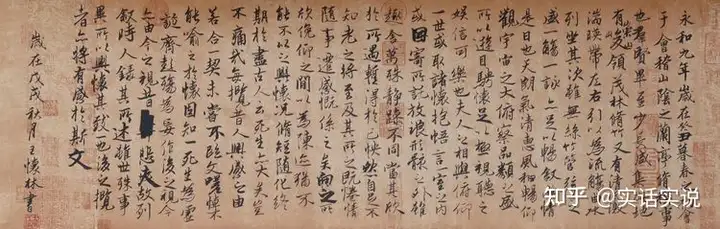 永和九年歲在癸丑暮春之初會
于會稽山陰之蘭亭脩禊事
也羣賢畢至少長咸集此地
有崇山峻領茂林脩竹又有清流激
湍暎帶左右引以為流觴曲水
列坐其次雖無絲竹管弦之
盛一觴一詠亦足以暢敘幽情
是日也天朗氣清惠風和暢仰
觀宇宙之大俯察品類之盛
所以遊目騁懷足以極視聽之
娛信可樂也夫人之相與俯仰
一世或取諸懷抱悟言一室之內
或因寄所託放浪形骸之外雖
趣舍萬殊靜躁不同當其欣
於所遇暫得於己快然自足不
知老之將至及其所之既惓情
隨事遷感慨係之矣向之所
欣俛仰之閒以為陳迹猶不
能不以之興懷況脩短隨化終
期於盡古人云死生亦大矣豈
不痛哉每攬昔人興感之由
若合一契未嘗不臨文嗟悼不
能喻之於懷固知一死生為虛
誕齊彭殤為妄作後之視今
亦由今之視昔悲夫故列
敘時人錄其所述雖世殊事
異所以興懷其致一也後之攬
者亦將有感於斯文
歲在戊戌秋月王懷林書
知乎 @实话实说